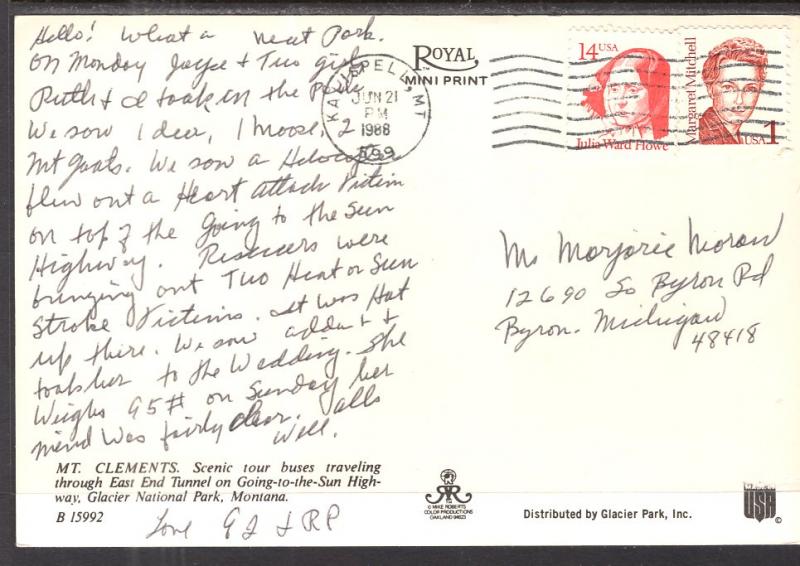 Hello! What a neat Park.
On Monday Joyce + Two girls
Ruth + I took in the Park
We saw 1 deer, 1 moose, 2
Mt goats. We saw a
flew out a Heart attack Victim
on top of the Going to the Sun
Highway. Rescuers were
bringing out Two Heat or Sun
Stroke Victims. It was Hot
up there. We saw &
took her to the Wedding. She
Weighs 95# on Sunday her
mind was fairly clear. alls
Well.
MT. CLEMENTS. Scenic tour buses traveling
through East End Tunnel on Going-to-the-Sun High-
way, Glacier National Park, Montana.
B 15992
Love GJ + RP
ROYAL
MINI PRINT
KALISPELL, MT
JUN 21
PM
1988
599
14 USA
Julia Ward Howe
Margaret Mitchell
USA 1
Ms Marjorie Moran
12690 So Byron Rd
Byron. Michigan
48418
© MIKE ROBERTS
COLOR PRODUCTIONS
OAKLAND 94623
Distributed by Glacier Park, Inc.
USA
©